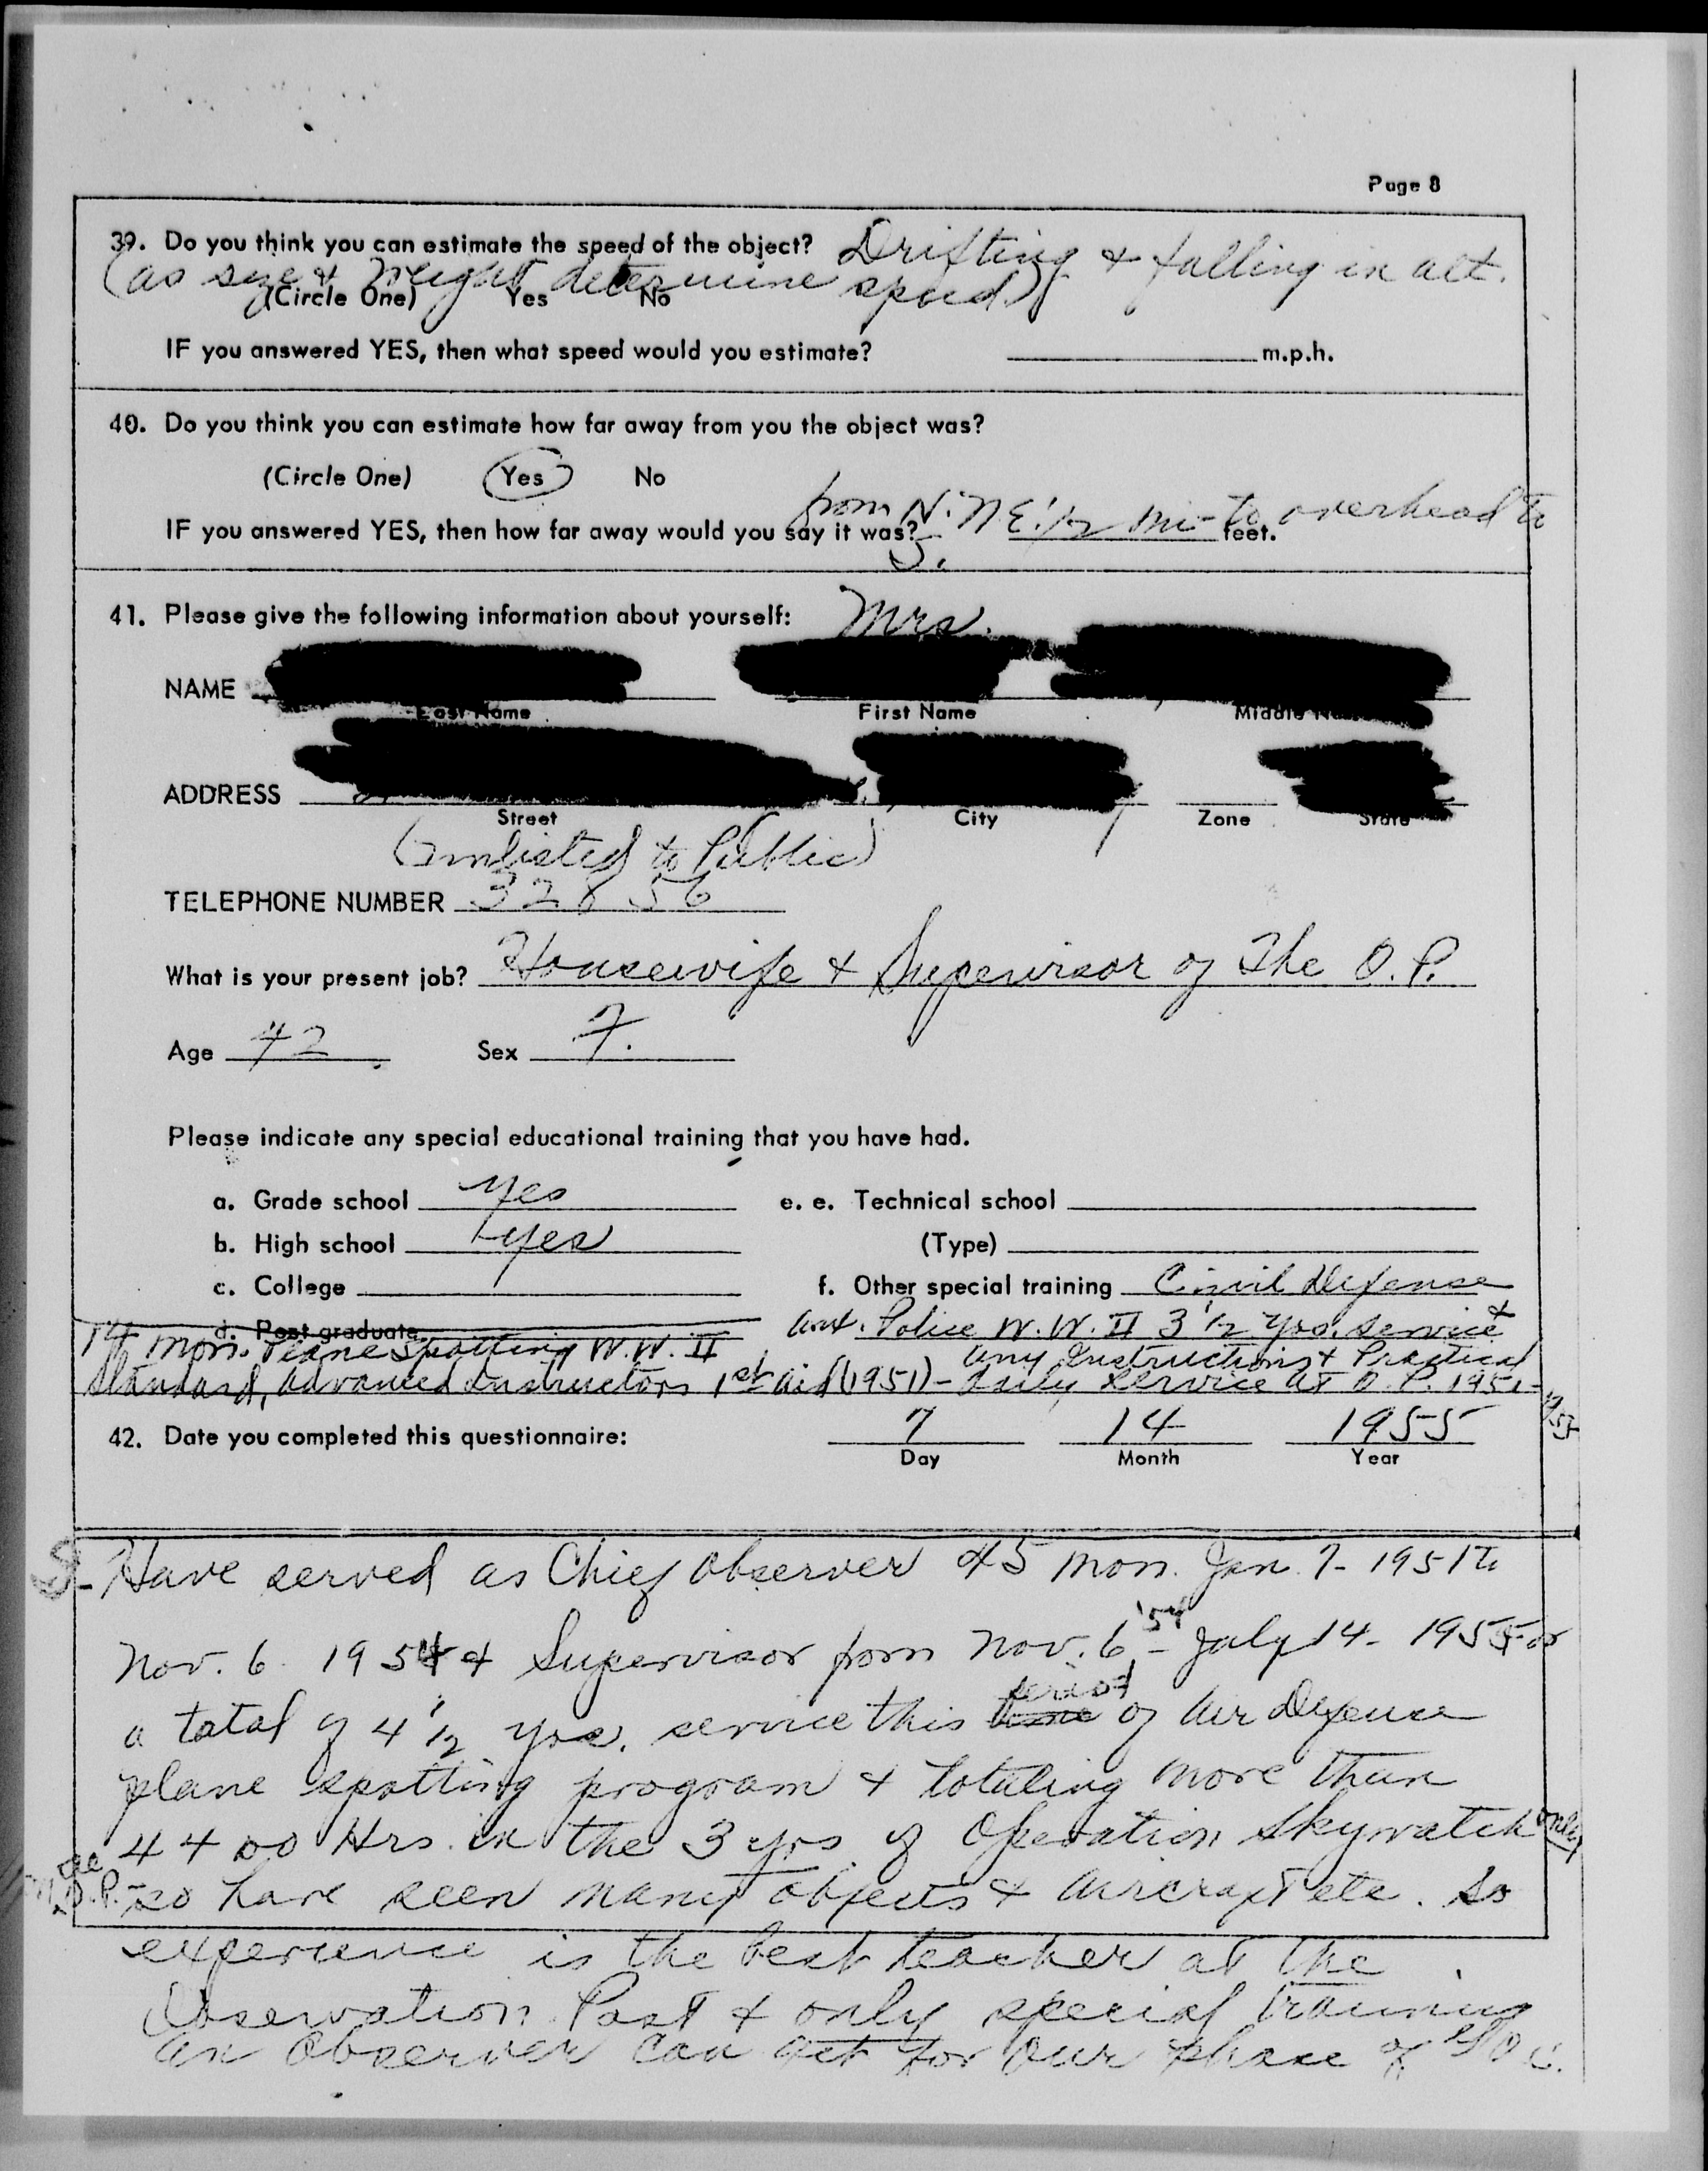 Page 8
39. Do you think you can estimate the speed of the object? Drifting & falling in alt.
(as size & height determine speed)
(Circle One) Yes No
IF you answered YES, then what speed would you estimate? m.p.h.
40. Do you think you can estimate how far away from you the object was?
(Circle One) Yes No
from N. NE. 1/2 mi - to overhead to
IF you answered YES, then how far away would you say it was? feet.
S.
41. Please give the following information about yourself: Mrs.
NAME
Last Name First Name Middle
ADDRESS
Street City Zone State
(unlisted to Public)
TELEPHONE NUMBER 32856
What is your present job? Housewife & Supervisor of The O.P.
Age 42 Sex F.
Please indicate any special educational training that you have had.
a. Grade school yes e. e. Technical school
b. High school yes (Type)
c. College f. Other special training Civil Defense
d. Post graduate Aux. Police W.W. II 3 1/2 yrs. service &
14 mon. Plane Spotting W.W. II any Instructions & Practical
Standard, Advanced Instructors 1st aid (1951) - daily service at O.P. 1951-
1955
42. Date you completed this questionnaire: 7 14 1955
Day Month Year
Have served as Chief Observer 45 mon. Jan. 7- 1951 to
Nov. 6 1954 & Supervisor from Nov. 6 '54 - July 14 - 1955 or
a total of 4 1/2 yrs. service this time period of Air Defense
plane spotting program & totaling more than
4400 Hrs. in the 3 yrs of Operation Skywatch only
O.P. - so have seen many objects & aircraft etc. so
experience is the best teacher at the
Observation Post & only special training
an Observer can get for our phase of GOC.